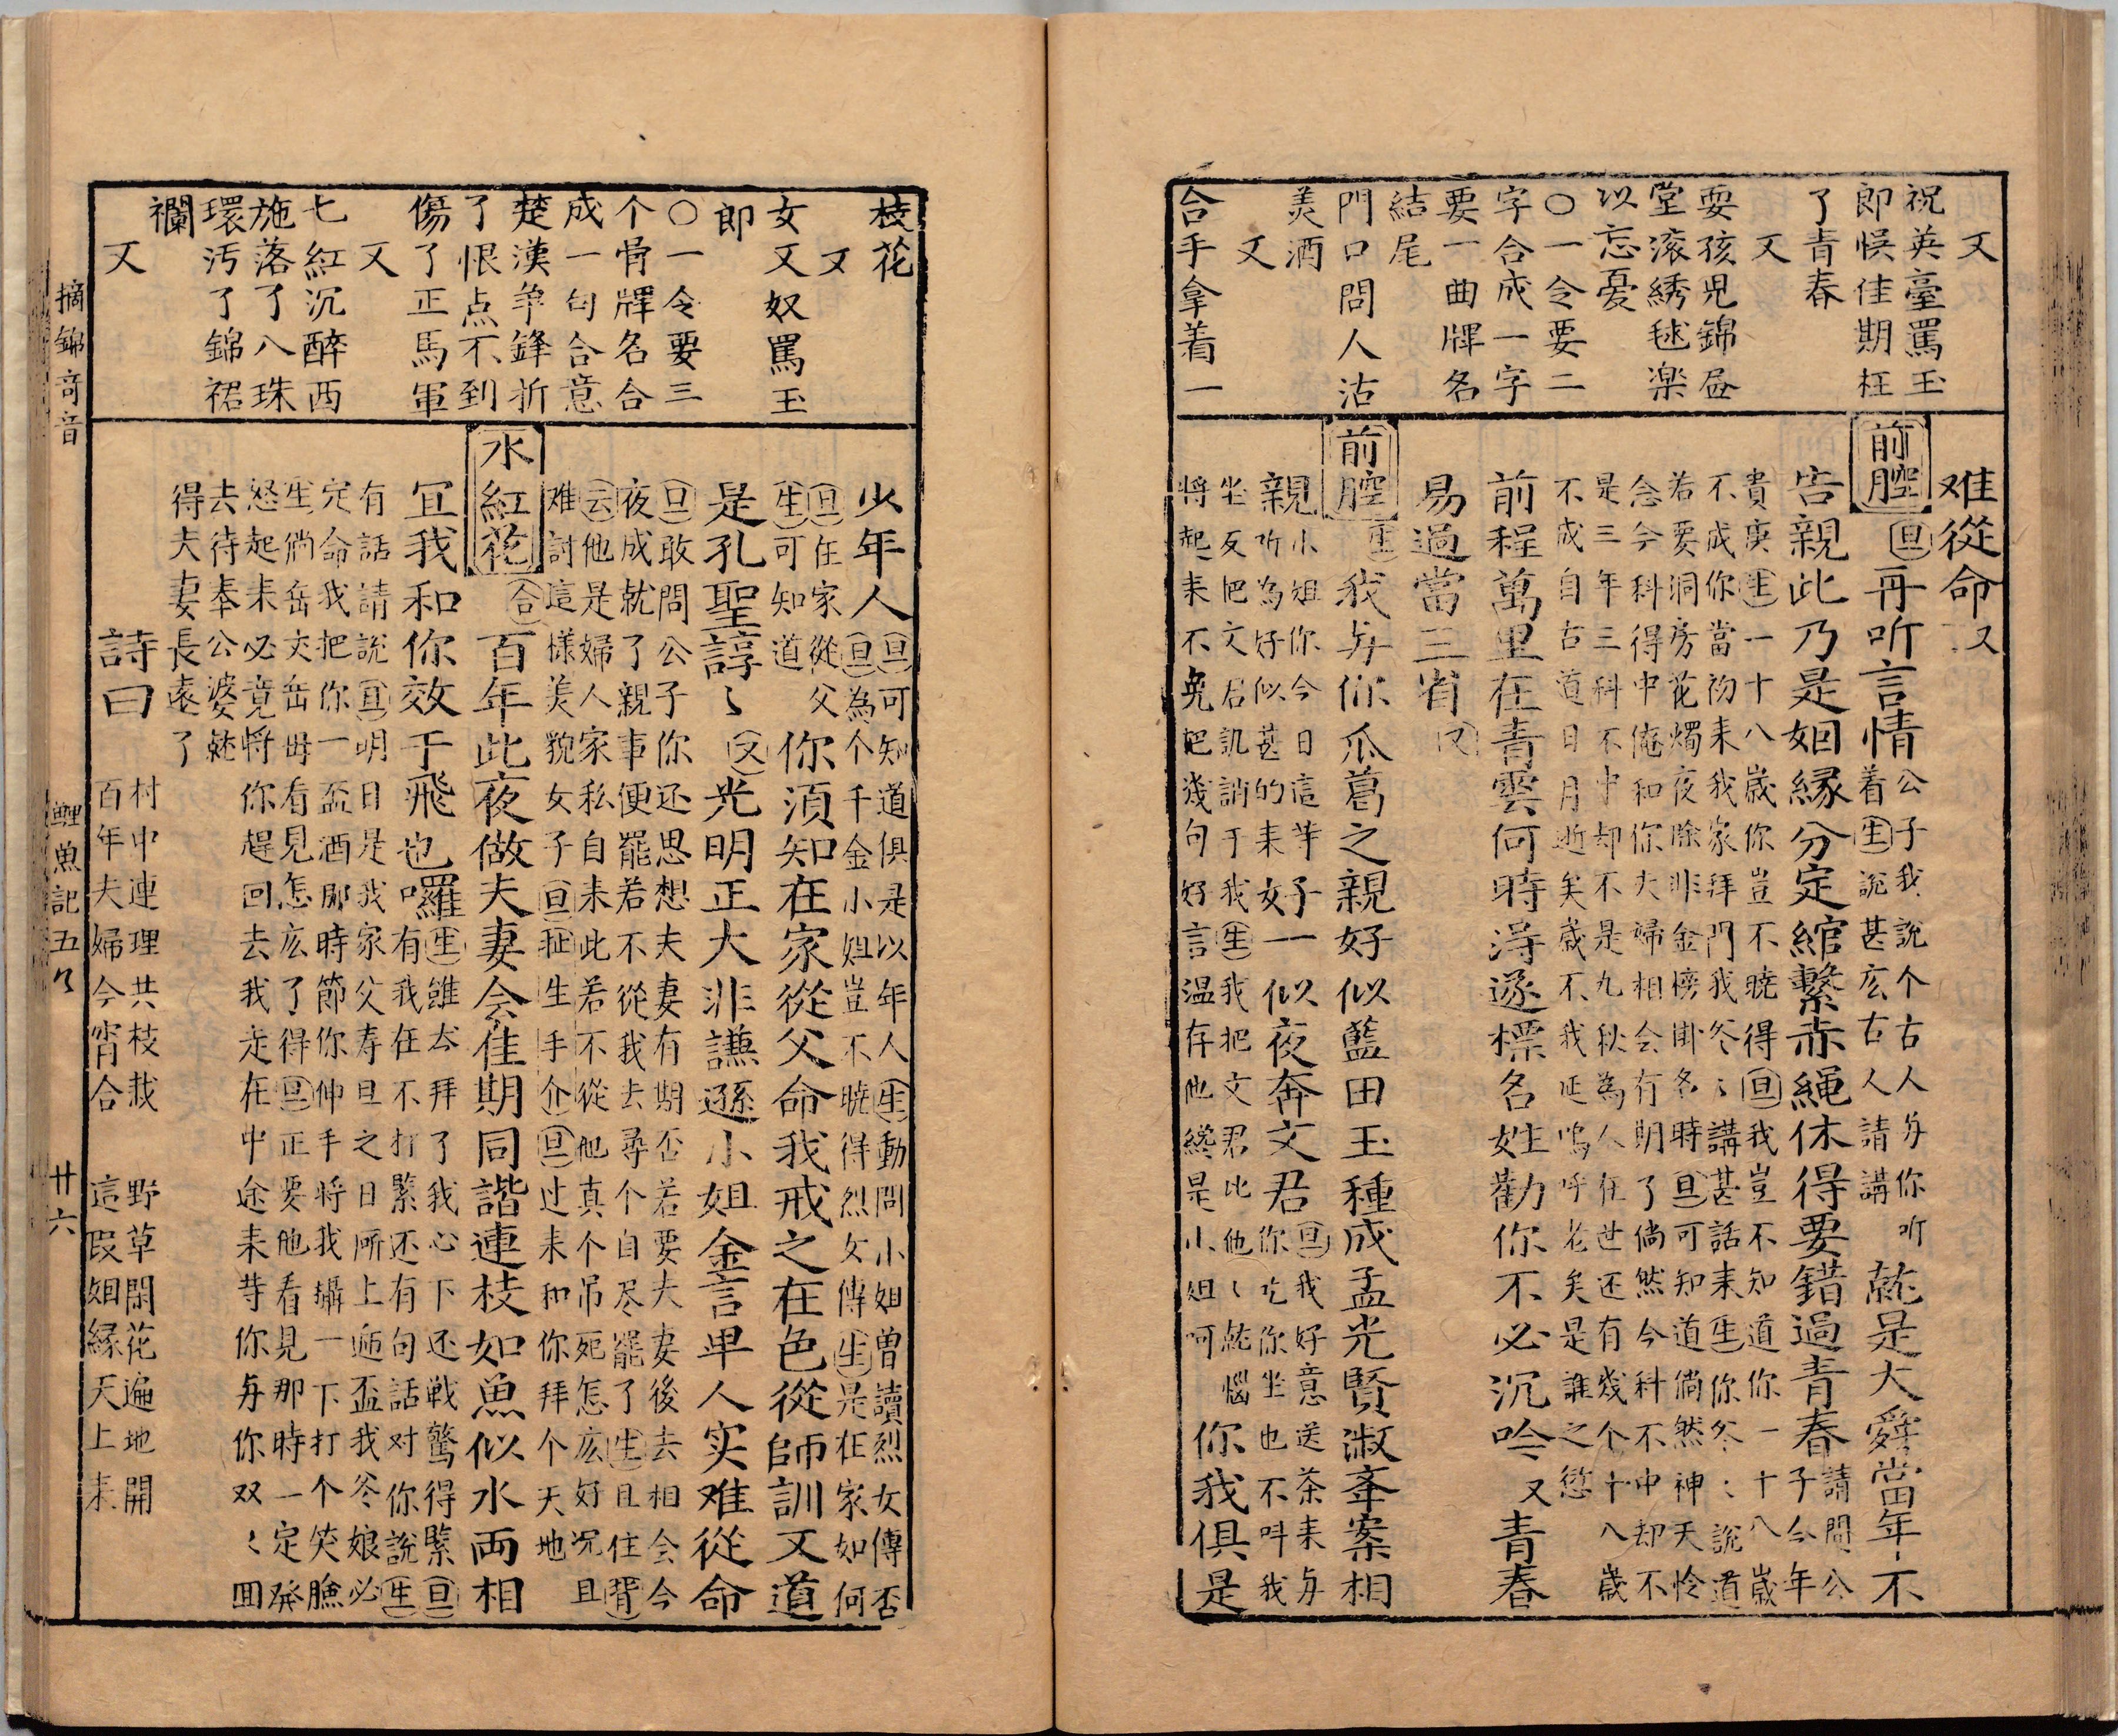 又
祝英臺罵玉
郎悞佳期枉
了青春
又
耍孩兒錦㞐
堂滚綉毬楽
以忘憂
〇一令要二
字合成一字
要一曲牌名
結尾
門口問人沽
美酒
又
合手拿着一
难從命又
前腔
旦
再听言情
公子我說个古人与你听
着生說甚庅古人請講
就是大舜當年不
告親此乃是姻縁分定綰繫赤繩休得要錯過青春
請問公
子今年
貴庚生一十八歲你豈不曉得旦我豈不知道你一十八歲
不成你當初耒我家拜門我爹〻講甚話耒生你爹〻說道
若要洞房花燭夜除非金榜掛名時旦可知道倘然神天怜
念今科得中俺和你夫婦相会有期了倘然今科不中却不
是三年三科不中却不是九秋為人在世还有幾个十八歲
不成自古道日月逝矣歲不我延嗚呼老矣是誰之愆
前程萬里在青雲何時淂遂標名姓勸你不必沉吟又青春
易過當三省
又
前腔
生
我与你瓜葛之親好似藍田玉種成孟光賢淑𪗋案相
親
小姐你今日這筆子
听為好似甚的耒女
一似夜奔文君
旦我好意送茶耒与
你吃你坐也不叫我
坐反把文君訊誚于我生我把文君比他〻就惱
將起耒不免把幾句好言温存他纔是小姐呵
你我俱是
枝花
又
女又奴罵玉
郎
〇一令要三
个骨牌名合
成一句合意
楚漢争鋒折
了恨点不到
傷了正馬軍
又
七紅沉醉西
施落了八珠
環汚了錦裙
襴
又
少年人
旦可知道俱是以年人生動問小姐曽讀烈女傳否
旦為个千金小姐豈不曉得烈女傳生是在家如何
旦在家從父
生可知道
你須知在家從父命我戒之在色從師訓又道
是孔聖諄〻
又
光明正大非謙遜小姐金言卑人实难從命
旦敢問公子你还思想夫妻有期否若要夫妻後去相会今
夜成就了親事便罷若不從我去尋个自尽罷了生且住背
云他是婦人家私自耒此若不從他真个吊死怎庅好况且
难討這樣美貌女子旦扯生手介旦过耒和你拜个天地
水紅花
合
百年此夜做夫妻会佳期同諧連枝如魚似水両相
宜我和你效于飛也囉
生雖然拜了我心下还戦驚得緊旦
有我在不打緊还有句話对你說生
有話請說旦明日是我家父寿旦之日所上逓盃我爹娘必
定命我把你一盃酒那時節你伸手將我攝一下打个笑臉
生倘岳夫岳毋看見怎庅了得旦正要他看見那時一定発
怒起耒必竟將你趕回去我走在中途耒寺你与你双〻囬
去待奉公婆就
得夫妻長遠了
詩曰
村中連理共枝栽
野草閑花遍地開
百年夫婦今宵合
這叚姻縁天上耒
摘錦奇音
鯉魚記五乆
廿六